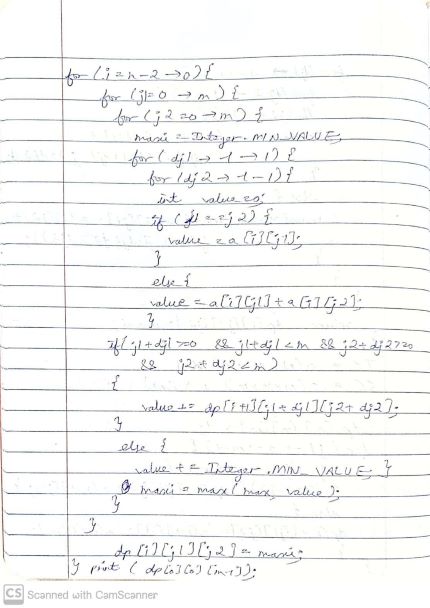 for (i = n-2 → 0) {
for (j1 = 0 → m) {
for (j2 = 0 → m) {
maxi = Integer.MIN_VALUE;
for ( dj1 → -1 → 1) {
for (dj2 → -1 - 1) {
int value = 0;
if (j1 == j2) {
value = a[i][j1];
}
else {
value = a[i][j1] + a[i][j2];
}
if( j1+dj1 >=0 && j1+dj1 < m && j2+dj2>=0
&& j2+dj2 < m)
{
value += dp[i+1][j1+dj1][j2+dj2];
}
else {
value += Integer.MIN_VALUE; }
maxi = max( max, value );
}
}
dp[i][j1][j2] = maxi;
} print ( dp[0][0][m-1]);
CS Scanned with CamScanner